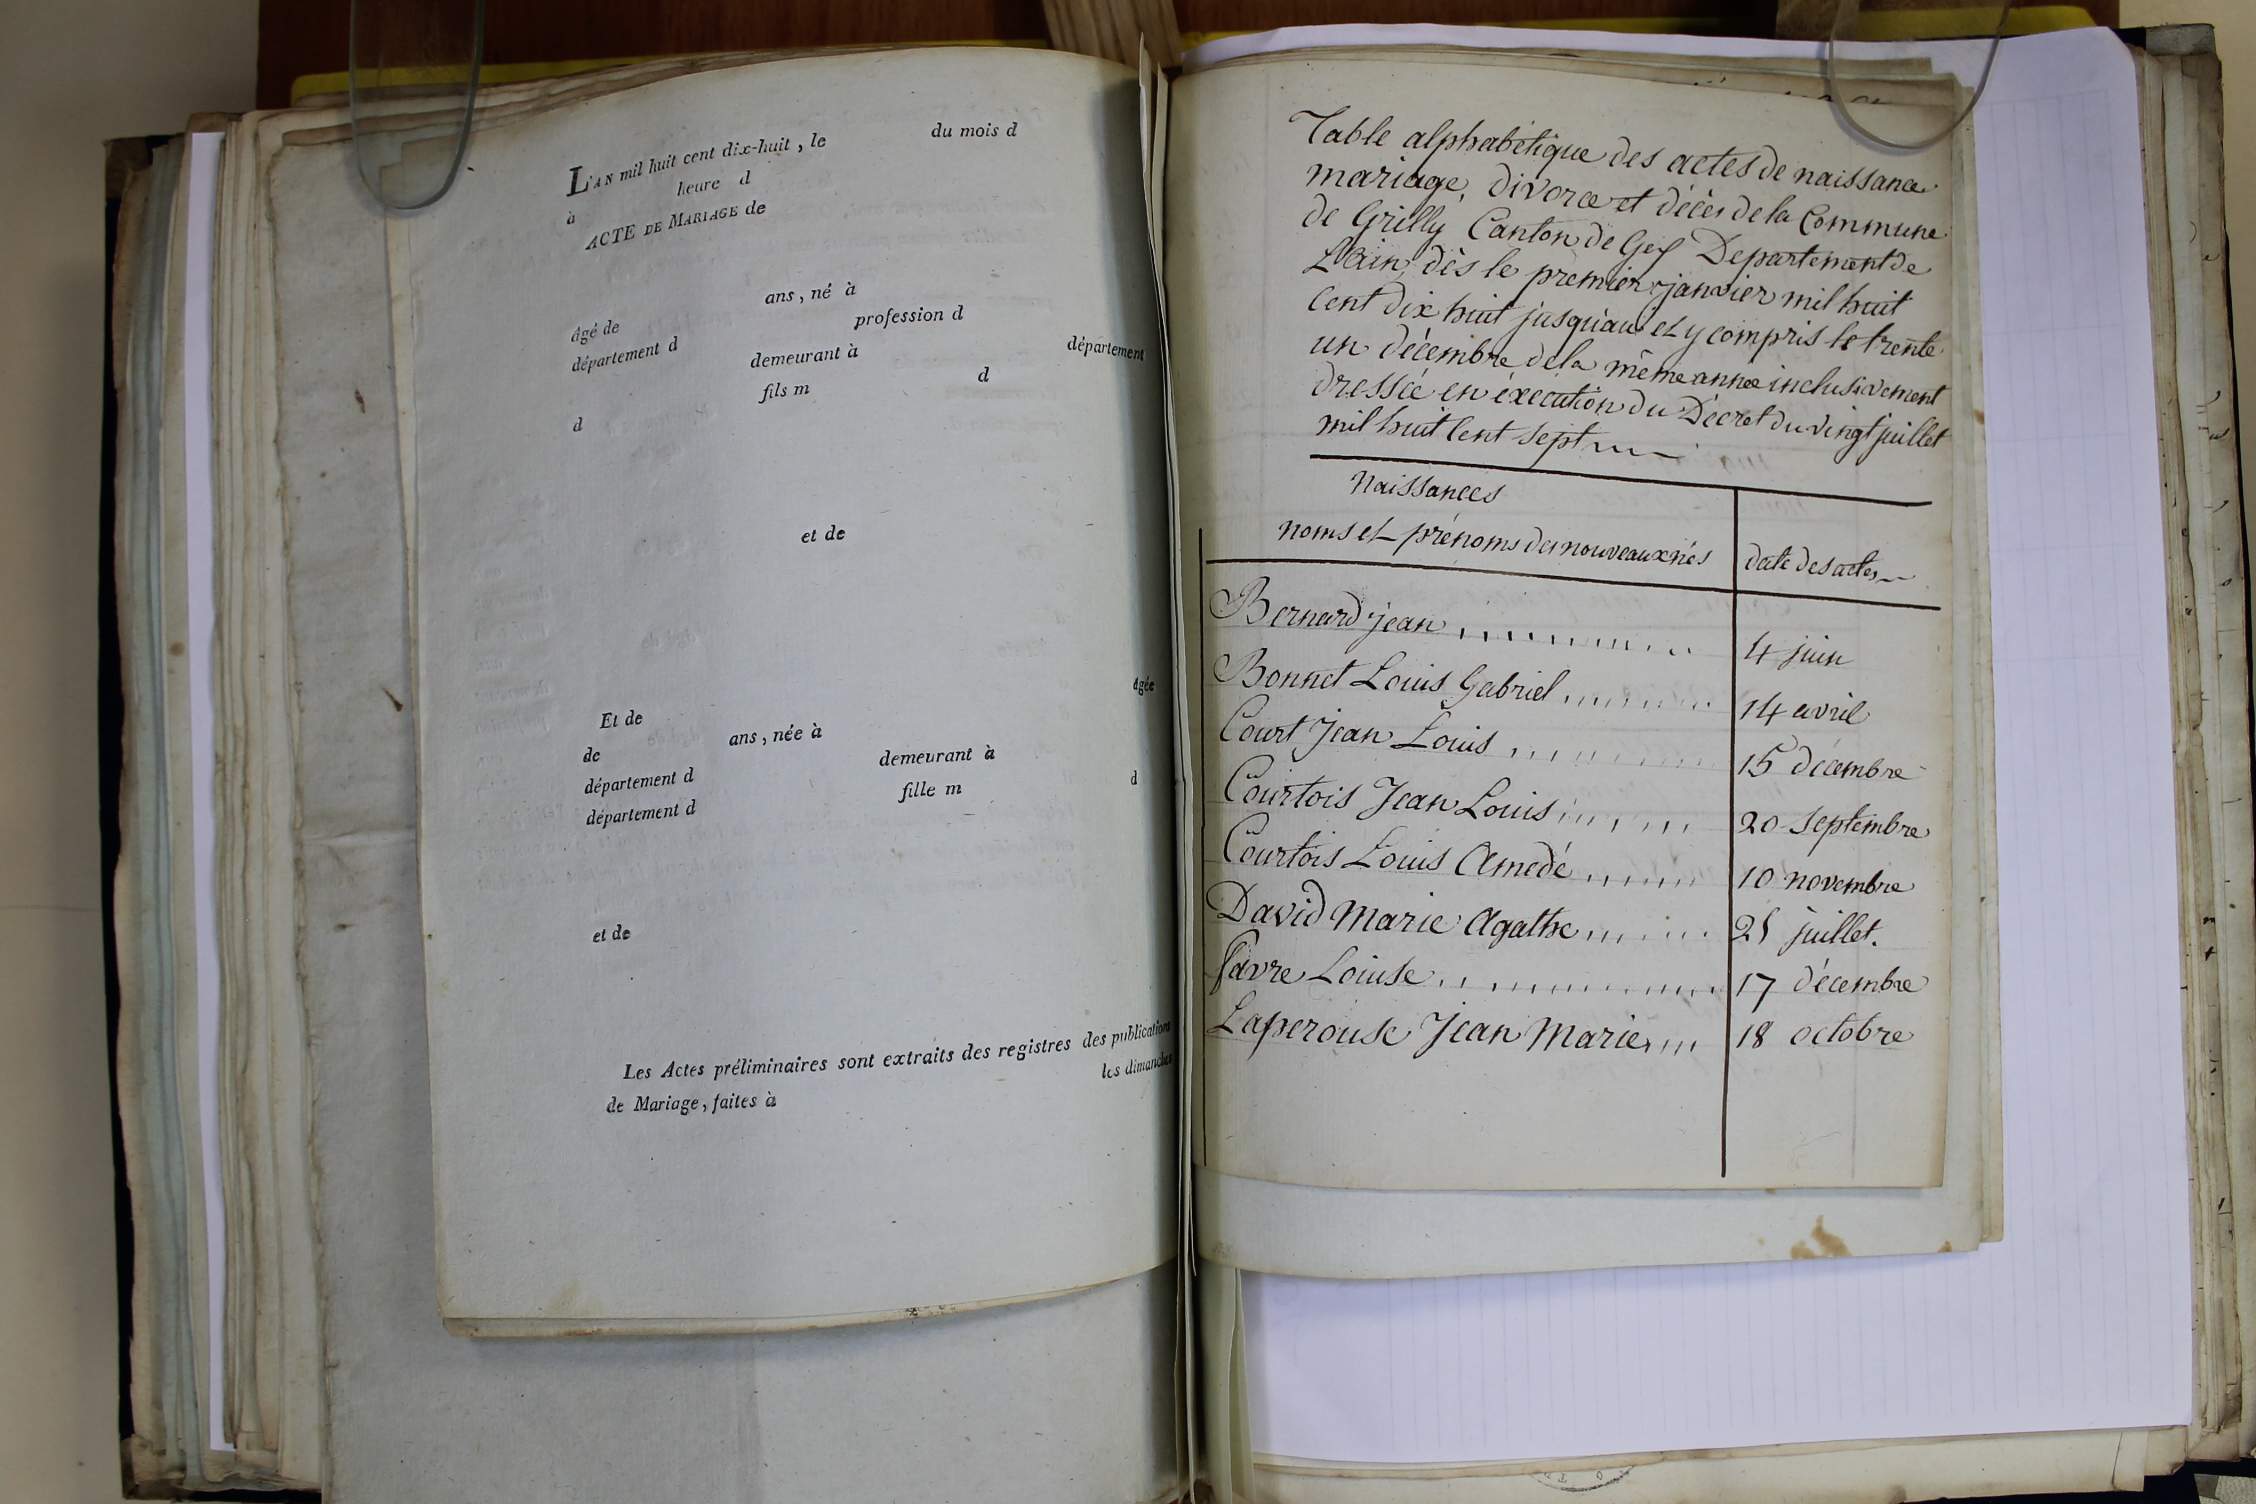 L'AN mil huit cent dix-huit, le du mois d
à heure d
ACTE DE MARIAGE de
Agé de ans, né à
département d profession d
demeurant à département
fils m d
d
et de
Agée
Et de
de ans, née à
département d demeurant à
département d fille m d
et de
Les Actes préliminaires sont extraits des registres des publications
de Mariage, faites à les dimanches
Table alphabétique des actes de naissance
mariage, divorce et décès de la Commune
de Grilly Canton de Gex Departement de
L'Ain, dès le premier janvier mil huit
Cent dix huit jusqu'au et y compris le trente
un décembre de la même année inclusivement
dressée en éxécution du Décret du vingt juillet
mil huit Cent Sept
Naissances
noms et prénoms des nouveaux nés date des actes
Bernard jean 4 juin
Bonnet Louis Gabriel 14 avril
Court Jean Louis 15 décembre
Courtois Jean Louis 20 septembre
Courtois Louis Amedé 10 novembre
David Marie Agathe 25 juillet.
favre Louise 17 décembre
Laperouse Jean Marie 18 octobre